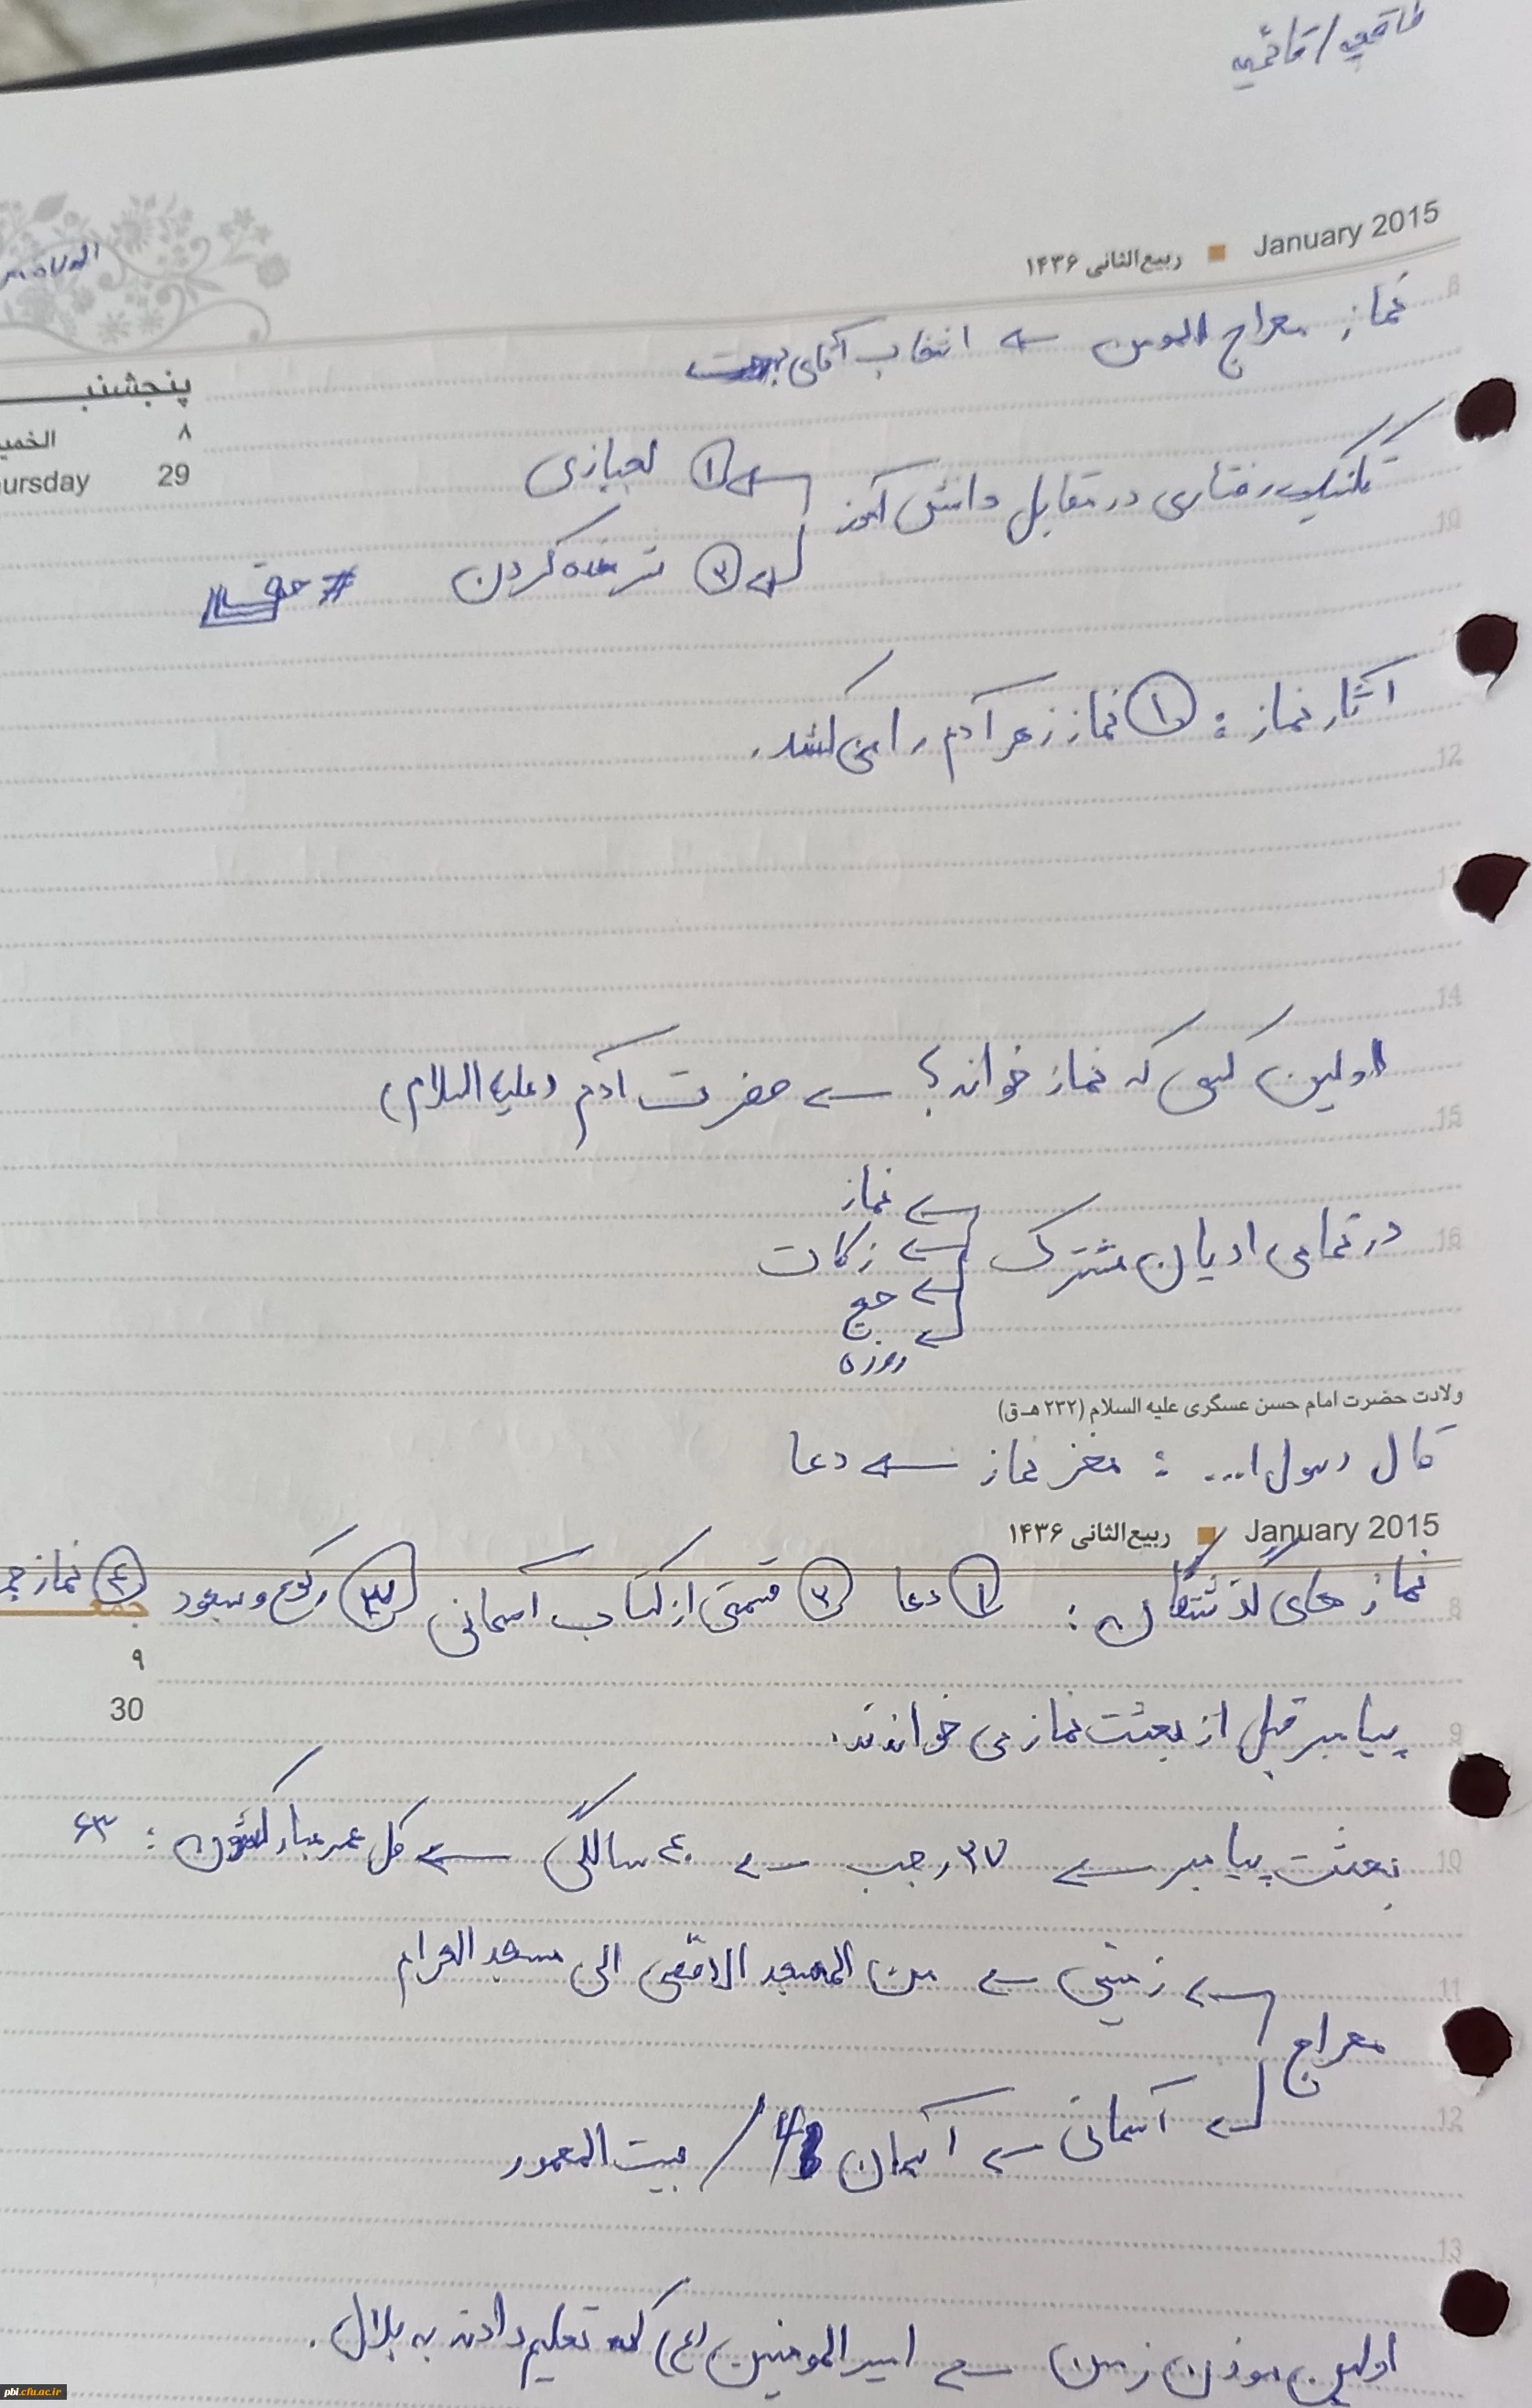 January 2015 ■ ربیع‌الثانی ۱۴۳۶
نماز معراج المومن ← انتخاب آقای بهجت
پنجشنبـ
۸
29
تکنیک رفتاری در مقابل دانش آموز ← ① لجبازی
← ② شرمنده کردن #
آثار نماز : ① نماز زهر آدم را می کشد.
اولین کسی که نماز خواند؟ ← حضرت آدم (علیه السلام)
در تمامی ادیان مشترک ← نماز
← زکات
← حج
← روزه
ولادت حضرت امام حسن عسگری علیه السلام (۲۳۲ هـ-ق)
قال رسول ا... : مغز نماز ← دعا
January 2015 ■ ربیع‌الثانی ۱۴۳۶
نماز های گذشتگان : ① دعا ② قسمتی از کتاب آسمانی ③ رکوع و سجود ④ نماز
۹
30
پیامبر قبل از بعثت نماز می خواندند.
بعثت پیامبر ← ۲۷ رجب ← ۴۰ سالگی ← کل عمر مبارکشون : ۶۳
معراج ← زمینی ← من المسجد الاقصی الی مسجد الحرام
← آسمانی ← آسمان 4 / بیت المعمور
اولین موذن زمین ← امیر المومنین (ع) که تعلیم دادند به بلال.
pbi.cfu.ac.ir